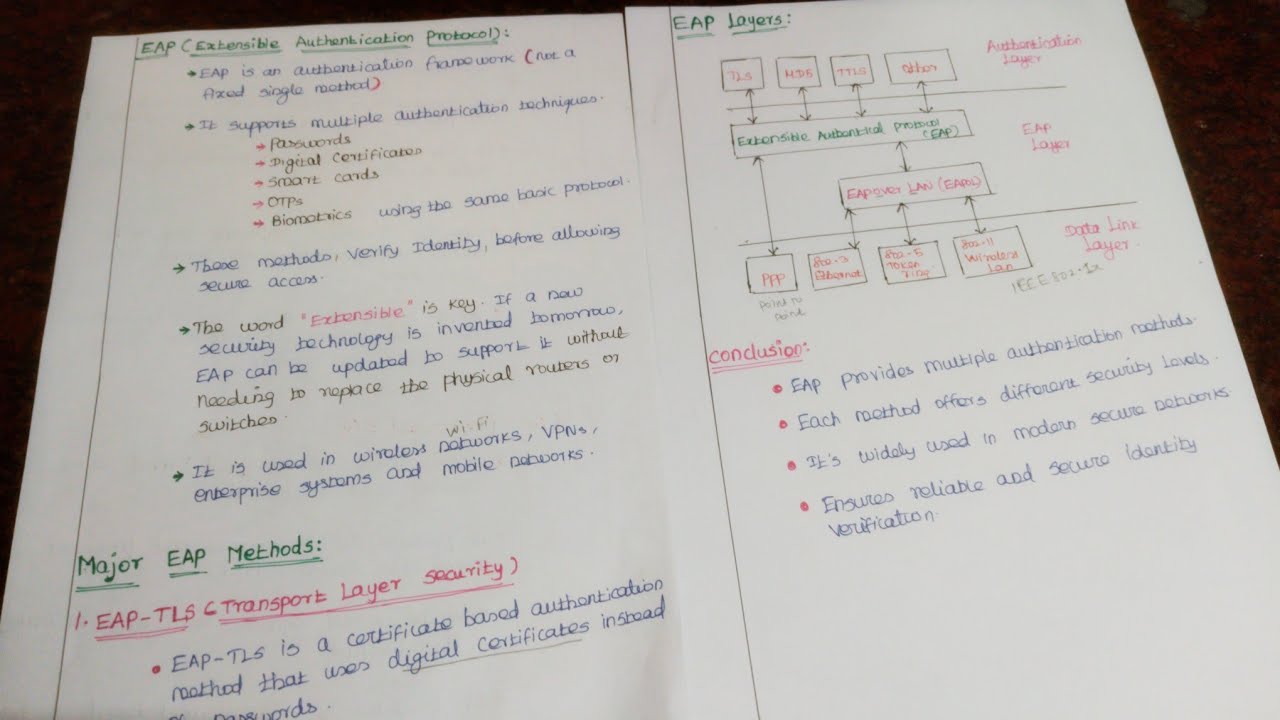 EAP (Extensible Authentication Protocol):
→ EAP is an authentication framework (not a
fixed single method)
→ It supports multiple authentication techniques.
→ Passwords
→ Digital Certificates
→ Smart cards
→ OTPs
→ Biometrics using the same basic protocol.
→ These methods, verify Identity, before allowing
secure access.
→ The word "Extensible" is key. If a new
security technology is invented tomorrow,
EAP can be updated to support it without
needing to replace the physical routers or
switches.
wi-fi
→ It is used in wireless networks, VPNs,
enterprise systems and mobile networks.
Major EAP Methods:
1. EAP-TLS (Transport Layer security)
• EAP-TLS is a certificate based authentication
method that uses digital certificates instead
passwords.
EAP Layers:
Authentication
Layer
TLS
MD5
TTLS
Other
Extensible Authentical Protocol
(EAP)
EAP
Layer
EAP over LAN (EAPOL)
Data Link
Layer.
PPP
802.3
Ethernet
802.5
Token
Ring
802.11
Wireless
Lan
Point to
Point
IEEE 802.1x
Conclusion:
• EAP provides multiple authentication methods.
• Each method offers different security levels.
• It's widely used in modern secure networks.
• Ensures reliable and secure identity
verification.